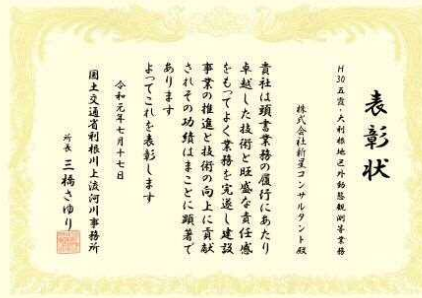 表彰状
H30五霞・大利根地区外動態観測等業務
株式会社新星コンサルタント殿
貴社は頭書業務の履行にあたり
卓越した技術と旺盛な責任感
をもってよく業務を完遂し建設
事業の推進と技術の向上に貢献
されその功績はまことに顕著で
あります
よってこれを表彰します
令和元年七月十七日
国土交通省利根川上流河川事務所
所長 三橋さゆり